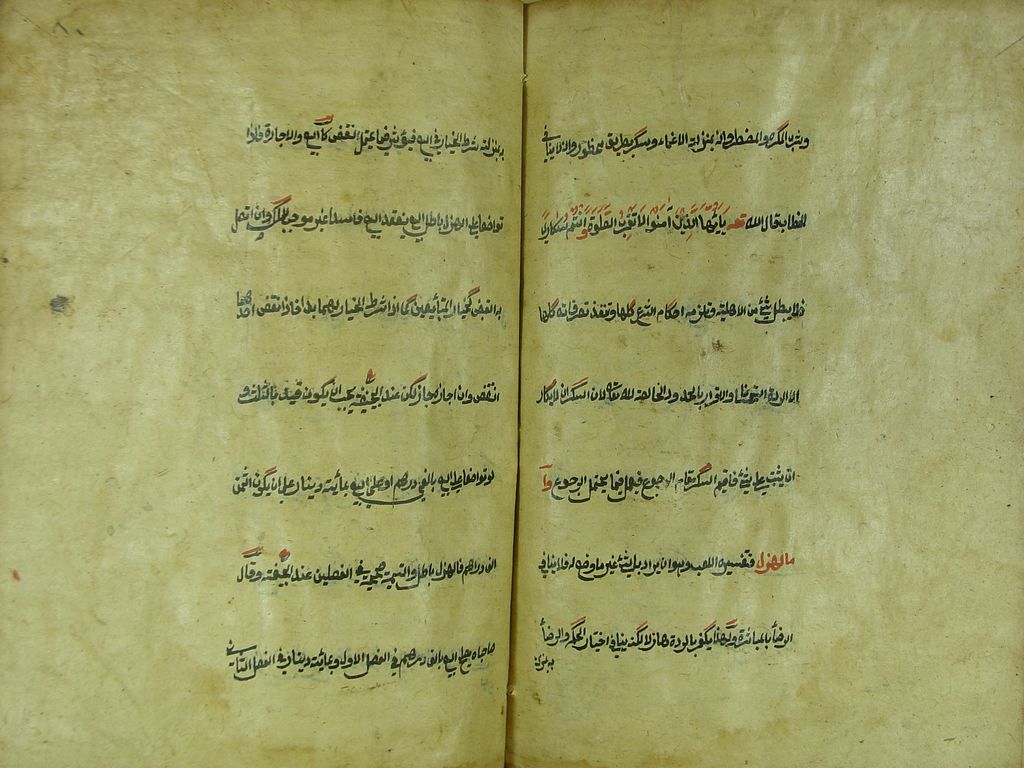 وشرب المكره والمضطر وانه بمنزلة الاغماء وسكر بطريق محظور وانه لا ينافي
الخطاب قال الله تعه يايها الذين آمنوا لا تقربوا الصلوة وانتم سكارى
فلا يبطل شيئا من الاهلية وتلزمه احكام الشرع كلها وتنفذ تصرفاته كلها
الا الردة استحسانا والاقرار بالحدود الخالصة لله تعالى لان السكران لا يكاد
ان يثبت على شئ فاقيم السكر مقام الرجوع فيعمل فيما يحتمل الرجوع وا
ما الهزل فتفسيره اللعب وهو ان يراد بالشئ غير ما وضع له فلا ينافي
الرضا بالمباشرة ولهذا يكفر بالردة هازلا لكنه ينافي اختيار الحكم والرضا
به بمنزلة
به بمنزلة شرط الخيار في البيع فيؤثر فيما يحتمل النقض كالبيع والاجارة فاذا
تواضعا على الهزل باصل البيع ينعقد البيع فاسدا غير موجب للملك وان اتصل
به القبض كخيار المتبائعين كما اذا شرط الخيار لهما ابدا فاذا نقض احدهما
انتقض وان اجازاه جاز لكن عند ابي حنيفة يجب ان يكون مقيدا بالثلث و
لو تواضعا على البيع بالفي درهم او على البيع بمائة دينار على ان يكون الثمن
الف درهم فالهزل باطل والتسمية صحيحة في الفصلين عند ابي حنيفة وقال
صاحباه يصح البيع بالف درهم في الفصل الاول وبمائة دينار في الفصل الثاني